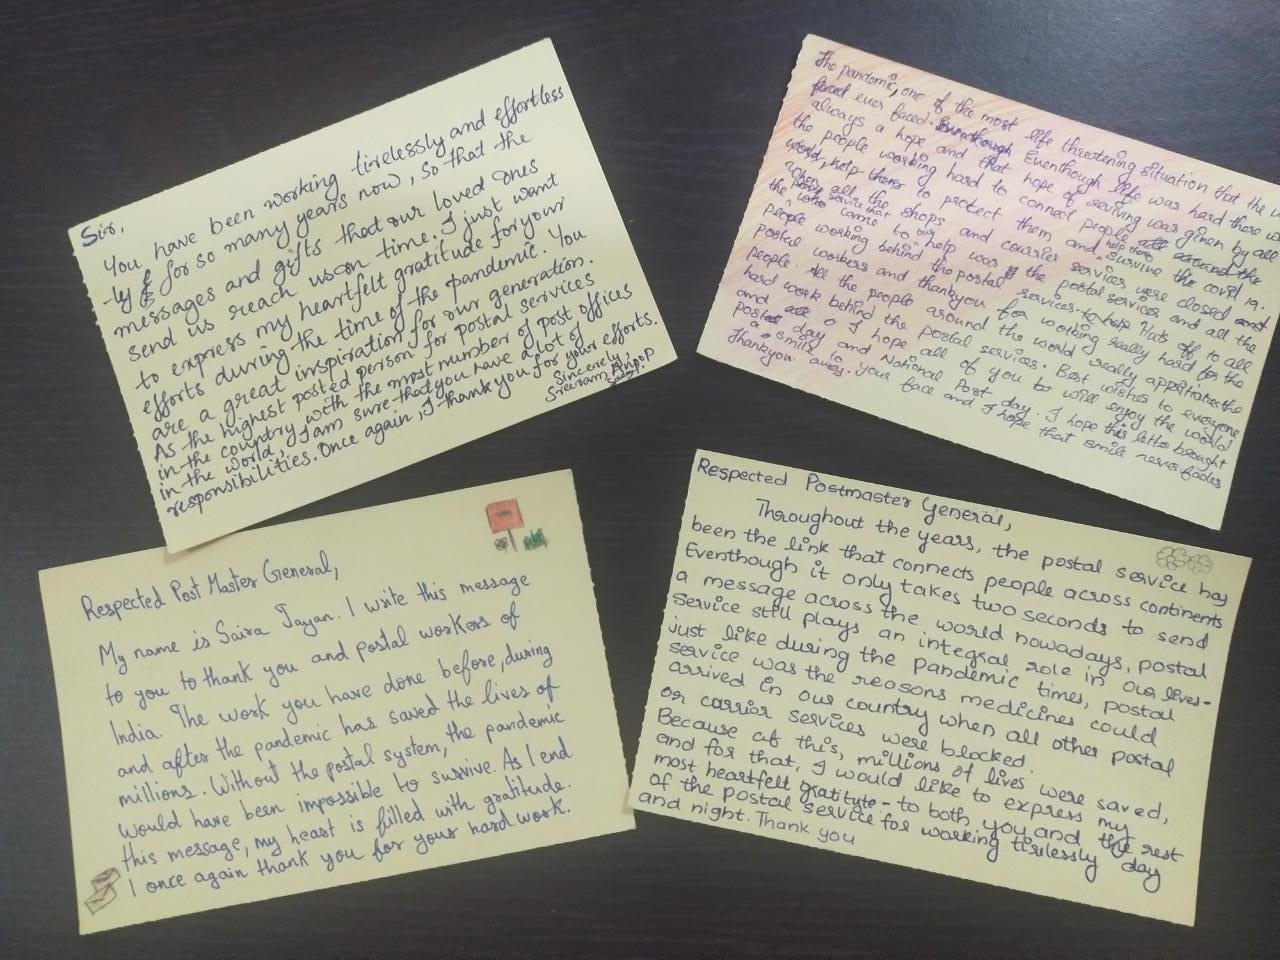 Sir,
You have been working tirelessly and effortless
-ly for so many years now, so that the
messages and gifts that our loved ones
send us reach us on time. I just want
to express my heartfelt gratitude for your
efforts during the time of the pandemic. You
are a great inspiration for our generation.
As the highest posted person for postal services
in the country with the most number of post offices
in the world, I am sure that you have a lot of
responsibilities. Once again, I thank you for your efforts.
Sincerely,
Sreeram Anoop
The pandemic, one of the most life threatening situation that the
ever faced. Eventhough life was hard there
always a hope and that hope of reviving was given by all
the people working hard to connect people around the
world, help to protect them and help them survive the covid 19.
When all the shops and courier services were closed
the postal service that came to our help was the postal services and all the
people working behind the postal services. Hats off to all
postal workers and thankyou for working really hard for the
people. All the people around the world really appritiates the
hard work behind the postal services. Best wishes to everyone
and I hope all of you will enjoy the world
post day and National Post day. I hope this letter brought
a smile to your face and I hope that smile never fades
away.
Thankyou
Respected Post Master General,
My name is Saira Jayan. I write this message
to you to thank you and postal workers of
India. The work you have done before, during
and after the pandemic has saved the lives of
millions. Without the postal system, the pandemic
would have been impossible to survive. As I end
this message, my heart is filled with gratitude.
I once again thank you for your hard work.
Respected Postmaster General,
Throughout the years, the postal service has
been the link that connects people across continents
Eventhough it only takes two seconds to send
a message across the world nowadays, postal
service still plays an integral role in our lives-
just like during the pandemic times, postal
service was the reasons medicines could
arrived in our country when all other postal
or carrior services were blocked.
Because of this, millions of lives were saved,
and for that, I would like to express my
most heartfelt gratityte - to both you and the rest
of the postal service for working tirelessly day
and night. Thank you